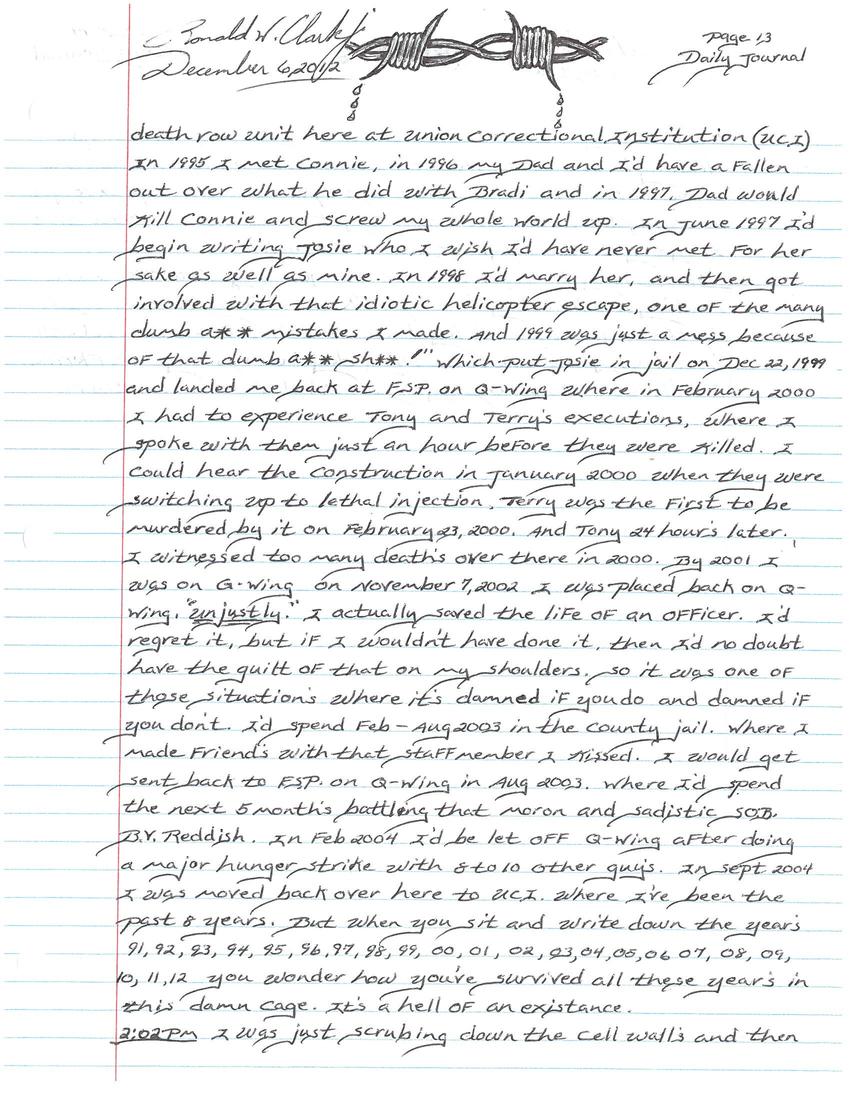 Ronald W. Clark Jr
December 6, 2012
Page 13
Daily Journal
death row unit here at Union Correctional Institution (UCI)
In 1995 I met Connie, in 1996 my Dad and I'd have a Fallen
out over what he did with Bradi and in 1997, Dad would
Kill Connie and screw my whole world up. In June 1997 I'd
begin writing Josie who I wish I'd have never met For her
sake as well as mine. In 1998 I'd marry her, and then got
involved with that idiotic helicopter escape, one of the many
dumb a** mistakes I made. And 1999 was just a mess because
of that dumb a** sh** !" Which put Josie in jail on Dec 22, 1999
and landed me back at F.S.P. on Q-Wing where in February 2000
I had to experience Tony and Terry's executions, where I
spoke with them just an hour before they were Killed. I
could hear the construction in January 2000 when they were
switching up to lethal injection. Terry was the First to be
murdered by it on February 23, 2000. And Tony 24 hour's later.
I witnessed too many death's over there in 2000. By 2001 I
was on G-wing on November 7, 2002 I was placed back on Q-
Wing. "unjustly." I actually saved the life of an officer. I'd
regret it, but if I wouldn't have done it, then I'd no doubt
have the guilt of that on my shoulders, so it was one of
those situation's where it's damned if you do and damned if
you don't. I'd spend Feb - Aug 2003 in the county jail. Where I
made Friend's with that staff member I Kissed. I would get
sent back to F.S.P. on Q-Wing in Aug 2003. Where I'd spend
the next 5 month's battling that moron and sadistic S.O.B.
B.V. Reddish. In Feb 2004 I'd be let off Q-Wing after doing
a major hunger strike with 8 to 10 other guy's. In Sept 2004
I was moved back over here to U.C.I. where I've been the
past 8 years. But when you sit and write down the year's
91, 92, 93, 94, 95, 96, 97, 98, 99, 00, 01, 02, 03, 04, 05, 06 07, 08, 09,
10, 11, 12 you wonder how you've survived all these year's in
this damn cage. It's a hell of an existance.
2:02 PM I was just scrubing down the cell wall's and then